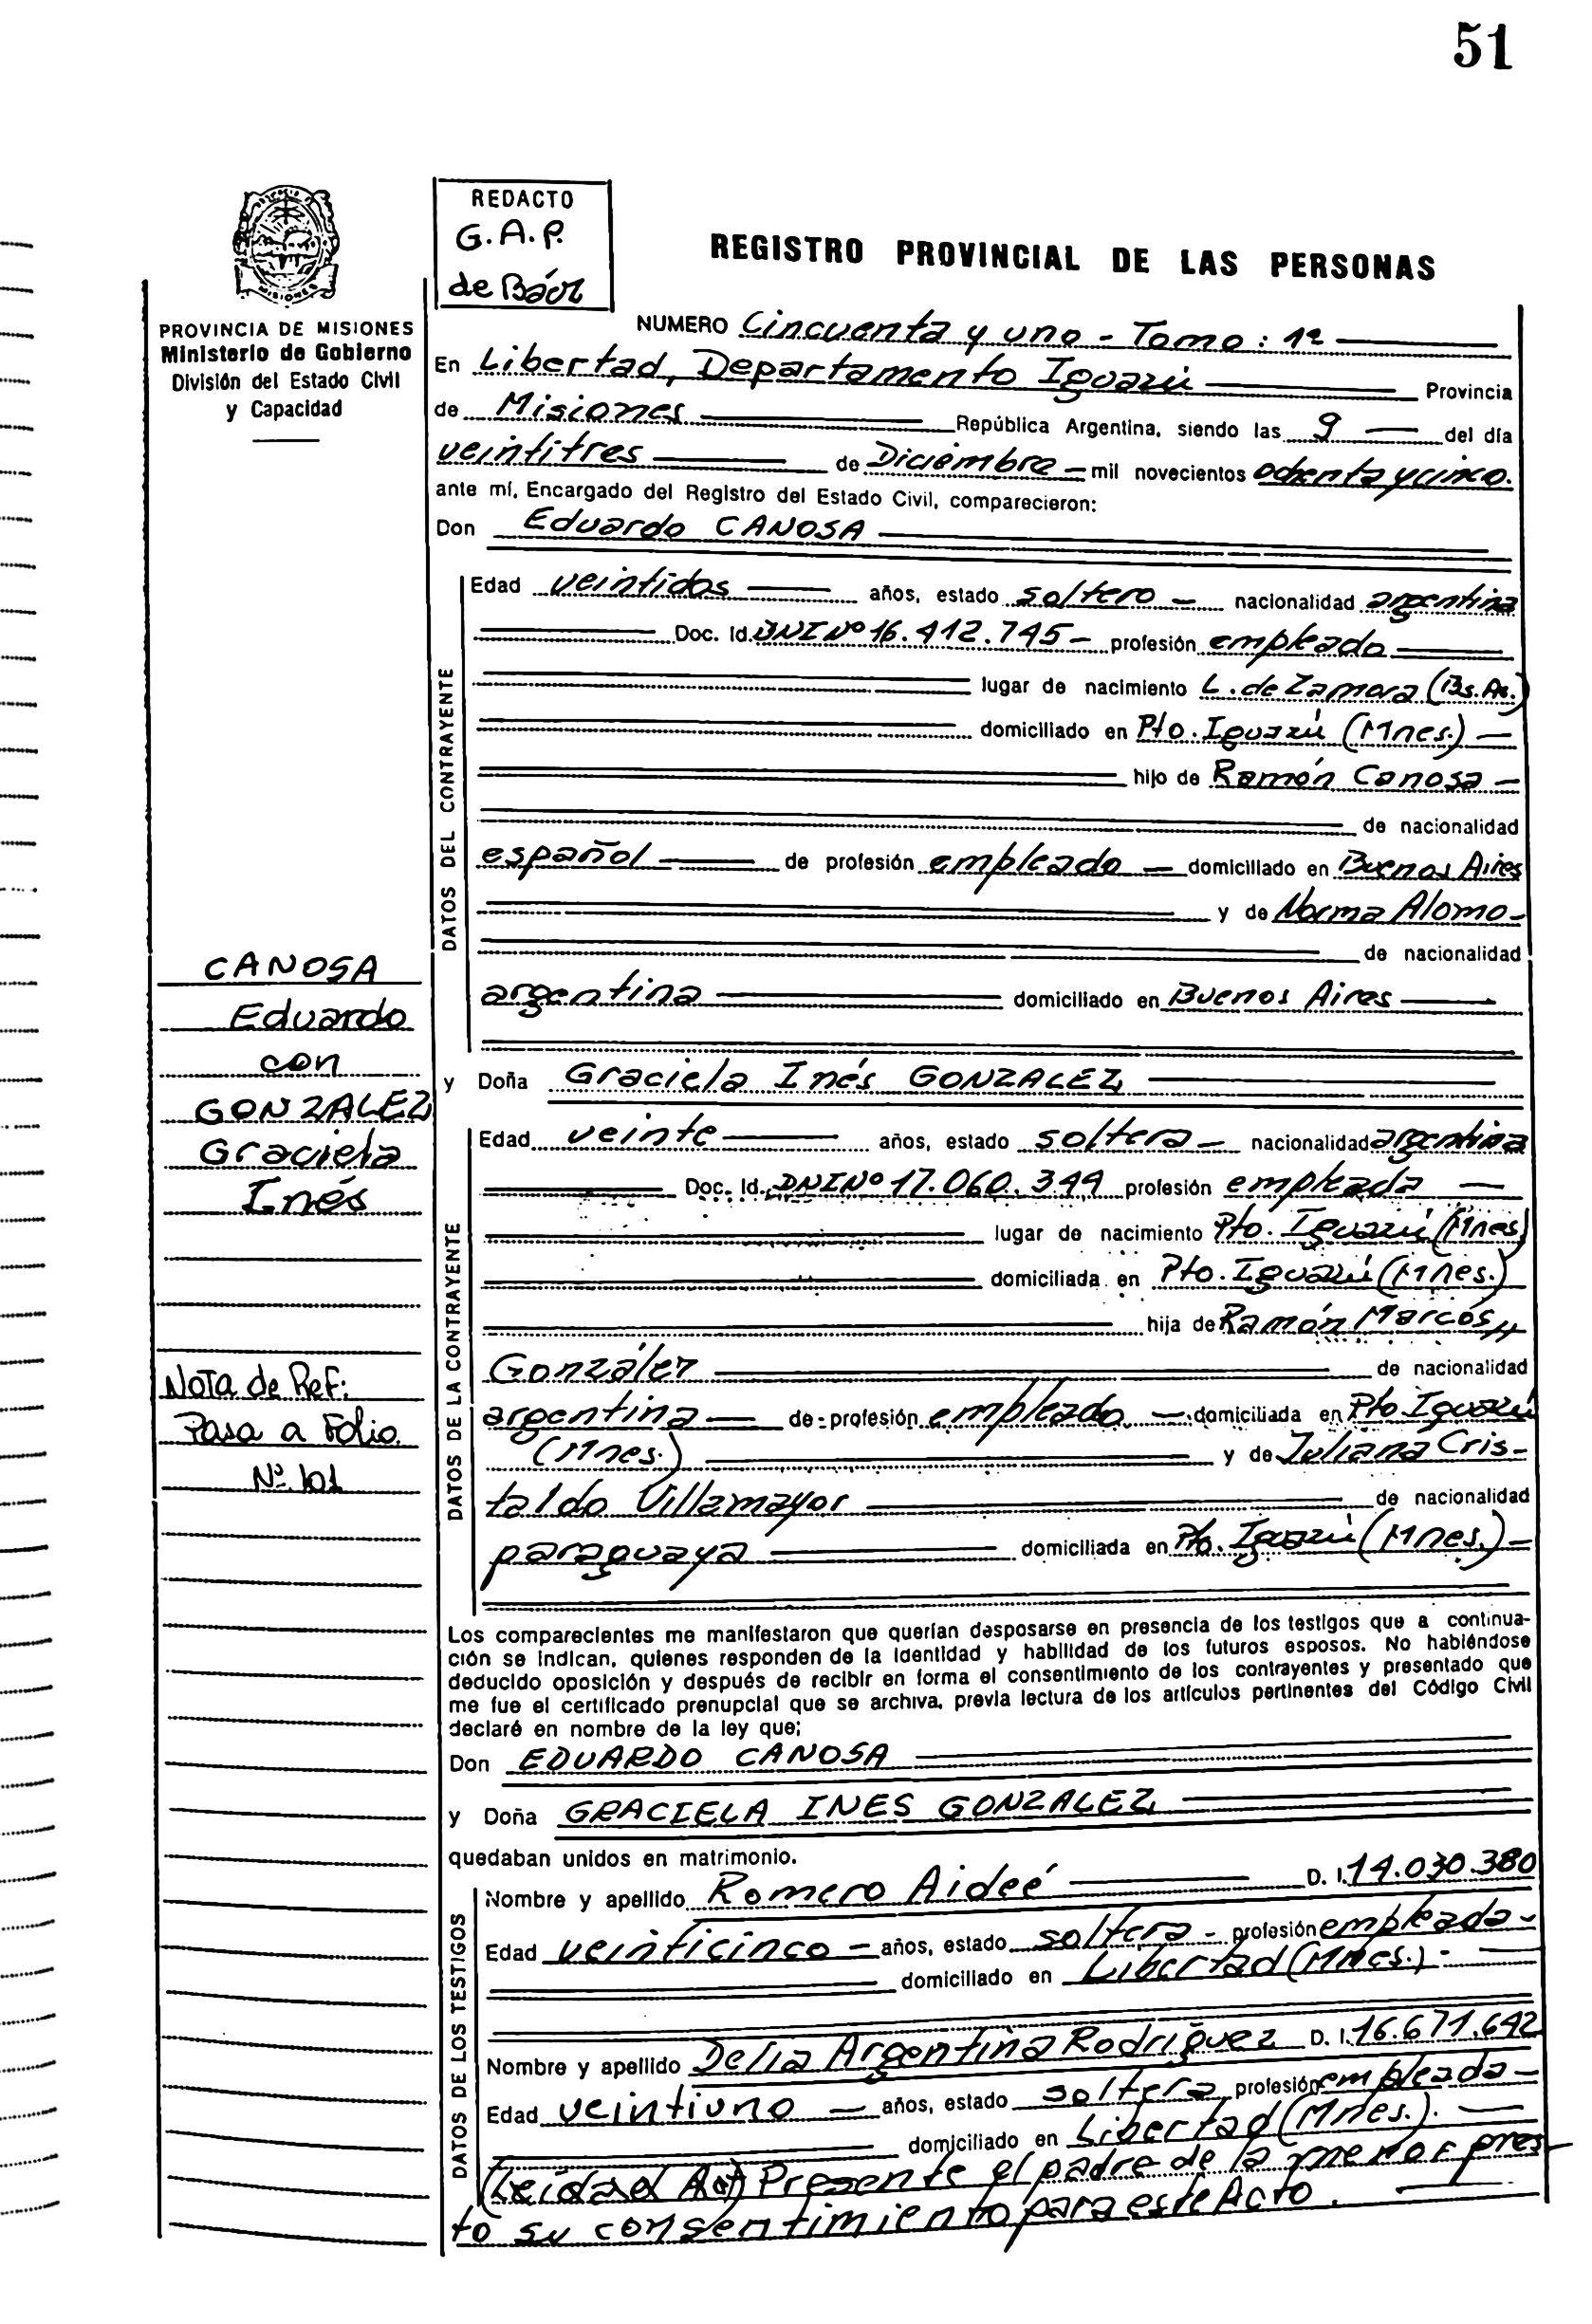 51
REDACTO
G.A.P.
de Báez
REGISTRO PROVINCIAL DE LAS PERSONAS
MISIONES
PROVINCIA DE MISIONES
Ministerio de Gobierno
División del Estado Civil
y Capacidad
NUMERO Cincuenta y uno - Tomo: 1º
En Libertad, Departamento Iguazú Provincia
de Misiones República Argentina, siendo las 9 del día
veintitres de Diciembre mil novecientos ochenta y cinco.
ante mí, Encargado del Registro del Estado Civil, comparecieron:
Don Eduardo CANOSA
DATOS DEL CONTRAYENTE
Edad veintidos años, estado soltero nacionalidad argentina
Doc. Id. DNI Nº 16.412.745 profesión empleado
lugar de nacimiento L. de Zamora (Bs. As.)
domiciliado en Pto. Iguazú (Mnes.)
hijo de Ramón Canosa
de nacionalidad
español de profesión empleado domiciliado en Buenos Aires
y de Norma Alomo
de nacionalidad
argentina domiciliado en Buenos Aires
CANOSA
Eduardo
con
GONZALEZ
Graciela
Inés
Nota de Ref:
Pasa a Folio
Nº 101
y Doña Graciela Inés GONZALEZ
DATOS DE LA CONTRAYENTE
Edad veinte años, estado soltera nacionalidad argentina
Doc. Id. DNI Nº 17.060.349 profesión empleada
lugar de nacimiento Pto. Iguazú (Mnes)
domiciliada en Pto. Iguazú (Mnes.)
hija de Ramón Marcos
González de nacionalidad
argentina de profesión empleado domiciliada en Pto Iguazú
(Mnes.) y de Juliana Cris-
taldo Villamayor de nacionalidad
paraguaya domiciliada en Pto. Iguazú (Mnes.)
Los comparecientes me manifestaron que querían desposarse en presencia de los testigos que a continua-
ción se indican, quienes responden de la identidad y habilidad de los futuros esposos. No habiéndose
deducido oposición y después de recibir en forma el consentimiento de los contrayentes y presentado que
me fue el certificado prenupcial que se archiva, previa lectura de los artículos pertinentes del Código Civil
declaré en nombre de la ley que;
Don EDUARDO CANOSA
y Doña GRACIELA INES GONZALEZ
quedaban unidos en matrimonio.
DATOS DE LOS TESTIGOS
Nombre y apellido Romero Aideé D. I. 14.030.380
Edad veinticinco años, estado soltera profesión empleada
domiciliado en Libertad (Mnes.)
Nombre y apellido Delia Argentina Rodríguez D. I. 16.671.642
Edad veintiuno años, estado soltera profesión empleada
domiciliado en Libertad (Mnes.).
(Leída el Acta) Presente el padre de la menor pres-
to su consentimiento para este Acto.